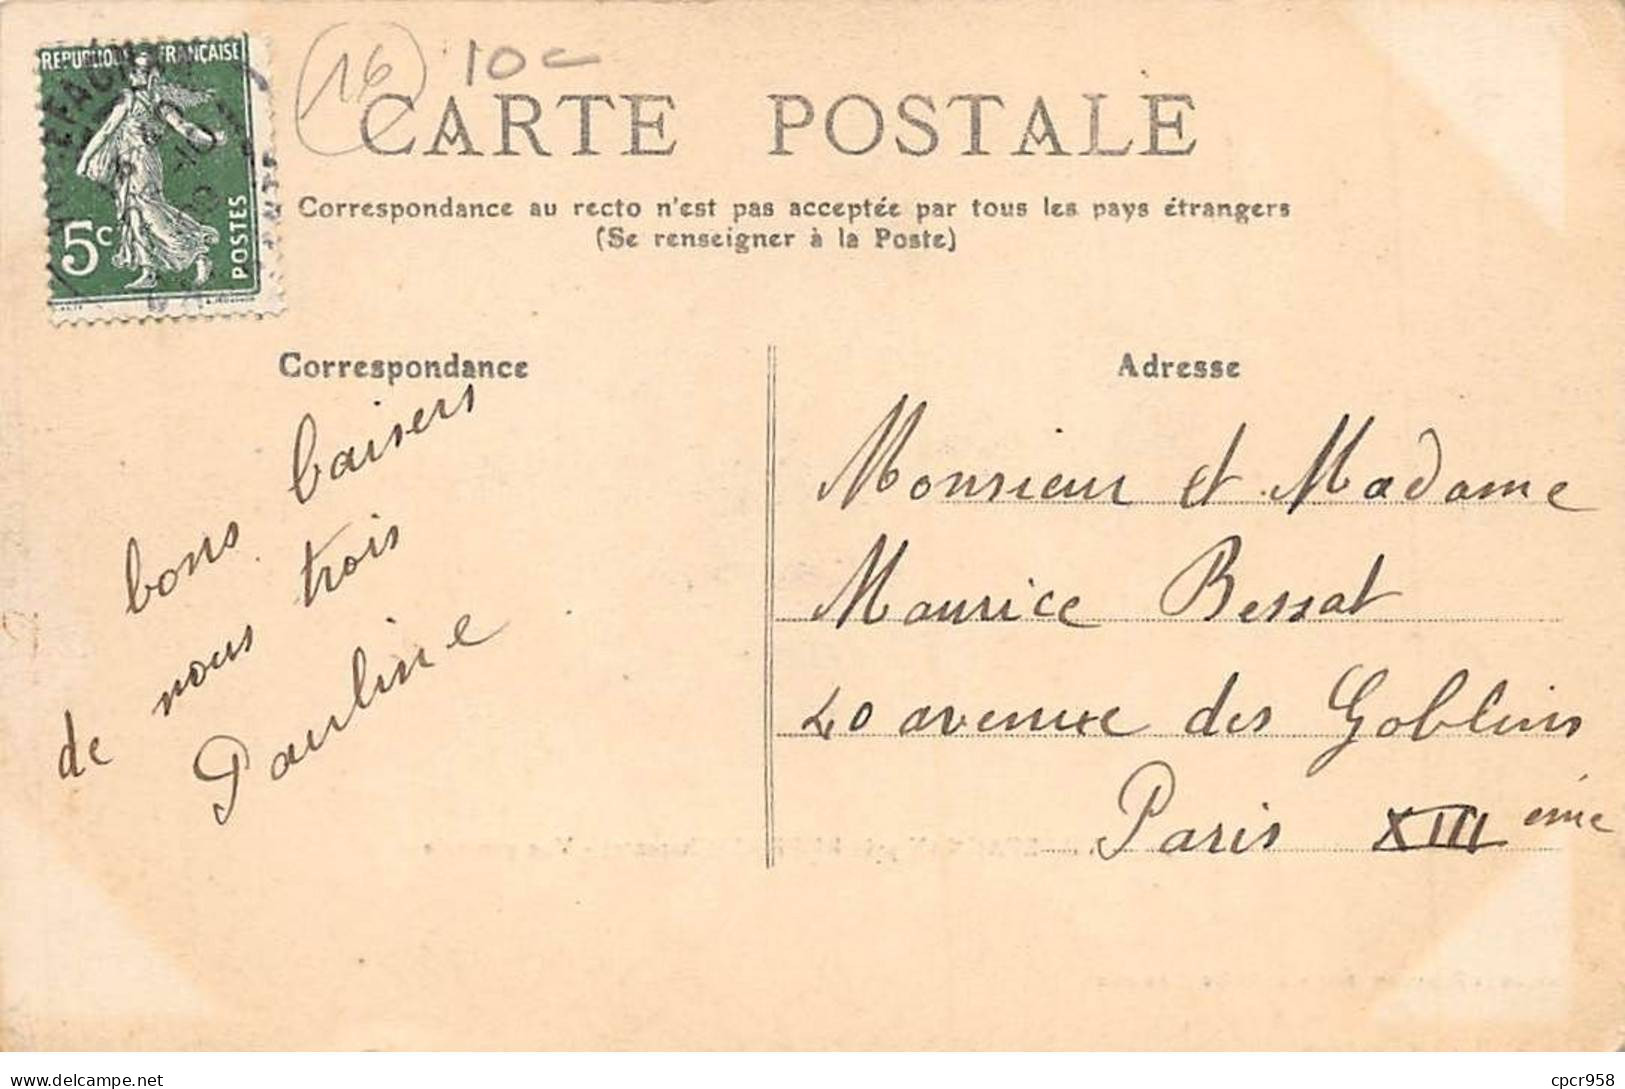 16
10c
RÉPUBLIQUE FRANÇAISE
5c
POSTES
CARTE POSTALE
Correspondance au recto n'est pas acceptée par tous les pays étrangers
(Se renseigner à la Poste)
Correspondance
bons baisers
de nous trois
Pauline
Adresse
Monsieur et Madame
Maurice Bessat
20 avenue des Goblins
Paris XIII ème
cpcr958